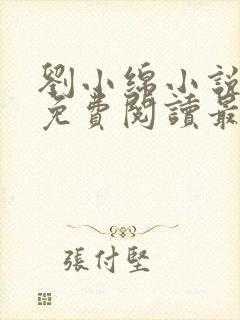 劉小綿小說
免費閱讀最
張付堅